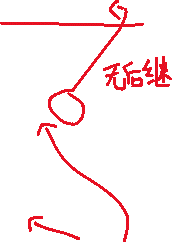 无后继